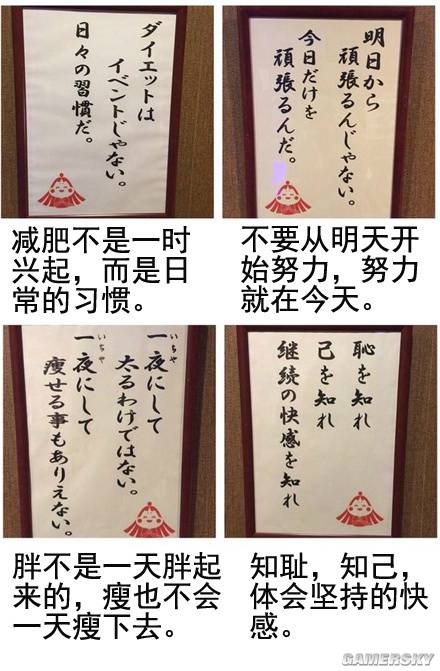 ダイエットは
イベントじゃない。
日々の習慣だ。
明日から
頑張るんじゃない。
今日だけを
頑張るんだ。
减肥不是一时
兴起，而是日
常的习惯。
不要从明天开
始努力，努力
就在今天。
いちや
一夜にして
太るわけではない。
いちや
一夜にして
痩せる事もありえない。
恥を知れ
己を知れ
継続の快感を知れ
胖不是一天胖起
来的，瘦也不会
一天瘦下去。
知耻，知己，
体会坚持的快
感。
GAMERSKY